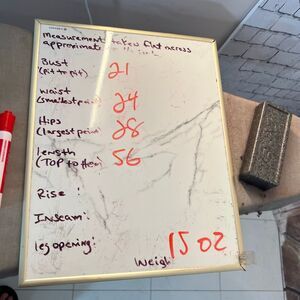 measurements taken flat across
approximate
Bust
(Pit to Pit) 21
waist
(smallest point) 24
Hips
(largest point) 28
length
(Top to Hem) 56
Rise:
Inseam:
leg opening:
15 oz
Weigh